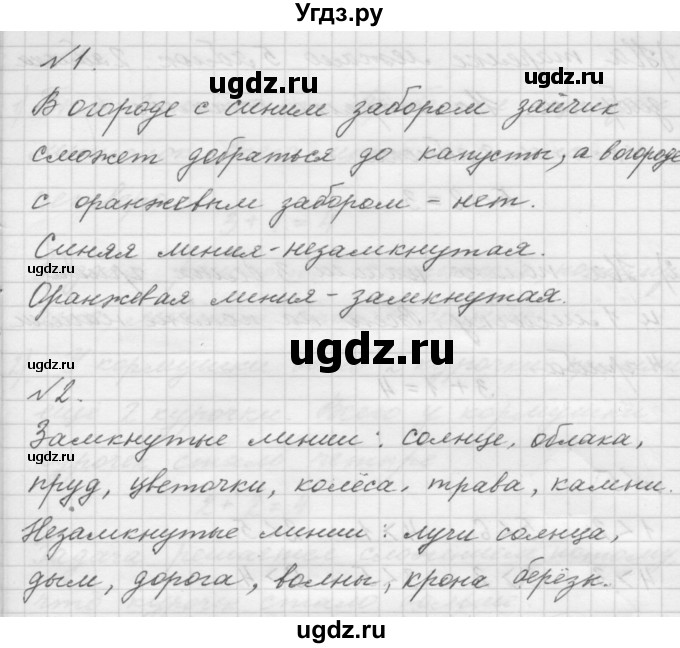 Угдз.ру
№1.
ugdz.ru
ugdz.ru
В огороде с синим забором зайчик
сможет добраться до капусты, а в огороде
с оранжевым забором - нет.
Синяя линия - незамкнутая.
ugdz.ru
Оранжевая линия - замкнутая.
ugdz.ru
ugdz.ru
№2.
Замкнутые линии: солнце, облака,
ugdz.ru
пруд, цветочки, колёса, трава, камни.
Незамкнутые линии: лучи солнца,
ugdz.ru
дым, дорога, волны, крона берёзк.
ugdz.ru
ugdz.ru